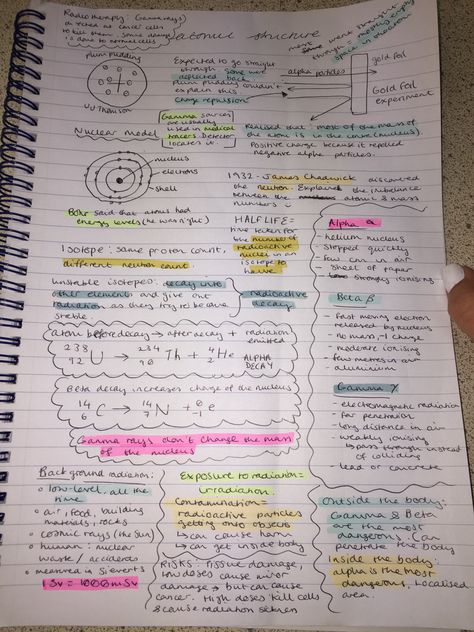 Radiotherapy: (Gamma rays)
directed at cancer cells
to kill them. Some damage
is done to normal cells
atomic structure
most went straight
through mostly empty
space in electron
plum pudding
JJ Thomson
Expected to go straight
through. Some were
deflected back.
plum pudding couldn't
explain this
Charge repulsion
alpha particles
gold foil
Gold foil
experiment
Nuclear model
Gamma sources
are usually
used in medical
tracers. Detector
locates it.
Realised that most of the mass of
the atom is in the centre (nucleus)
Positive charge because it repelled
negative alpha particles.
nucleus
electrons
shell
1932 - James Chadwick discovered
the neutron. Explained the imbalance
between atomic & mass
numbers
Bohr said that atoms had
energy levels (he was right)
HALF LIFE =
time taken for
the number of
radioactive
nuclei in an
isotope to
halve
Isotope: same proton count,
different neutron count.
Unstable isotopes: decay into
other elements and give out
radiation as they try to become
stable
radioactive
decay
Alpha α
- helium nucleus
- stopped quickly
- few cm in air
- sheet of paper
- strongly ionising
Beta β
- fast moving electron
released by nucleus
- no mass, -1 charge
- moderate ionising
- few metres in air
- aluminium
Gamma γ
- electromagnetic radiation
- far penetration
- long distance in air
- weakly ionising
↳ pass through instead
of colliding
- lead or concrete
atom before decay → after decay + radiation
emitted
238 92 U → 234 90 Th + 4 2 He ALPHA
DECAY
Beta decay increases charge of the nucleus
14 6 C → 14 7 N + 0 -1 e
Gamma rays don't change the mass
of the nucleus
Background radiation:
○ low-level, all the
time
○ air, food, building
materials, rocks
○ cosmic rays (the Sun)
○ human: nuclear
waste / accidents
○ measured in Sieverts
1Sv = 1000mSv
Exposure to radiation =
irradiation
Contamination =
radioactive particles
getting onto objects
↳ can cause harm
↳ can get inside body
RISKS: Tissue damage,
low doses cause minor
damage → but can cause
cancer. High doses kill cells
& cause radiation sickness
Outside the body:
Gamma & Beta
are the most
dangerous. Can
penetrate the body
Inside the body:
alpha is the most
dangerous. Localised
area.